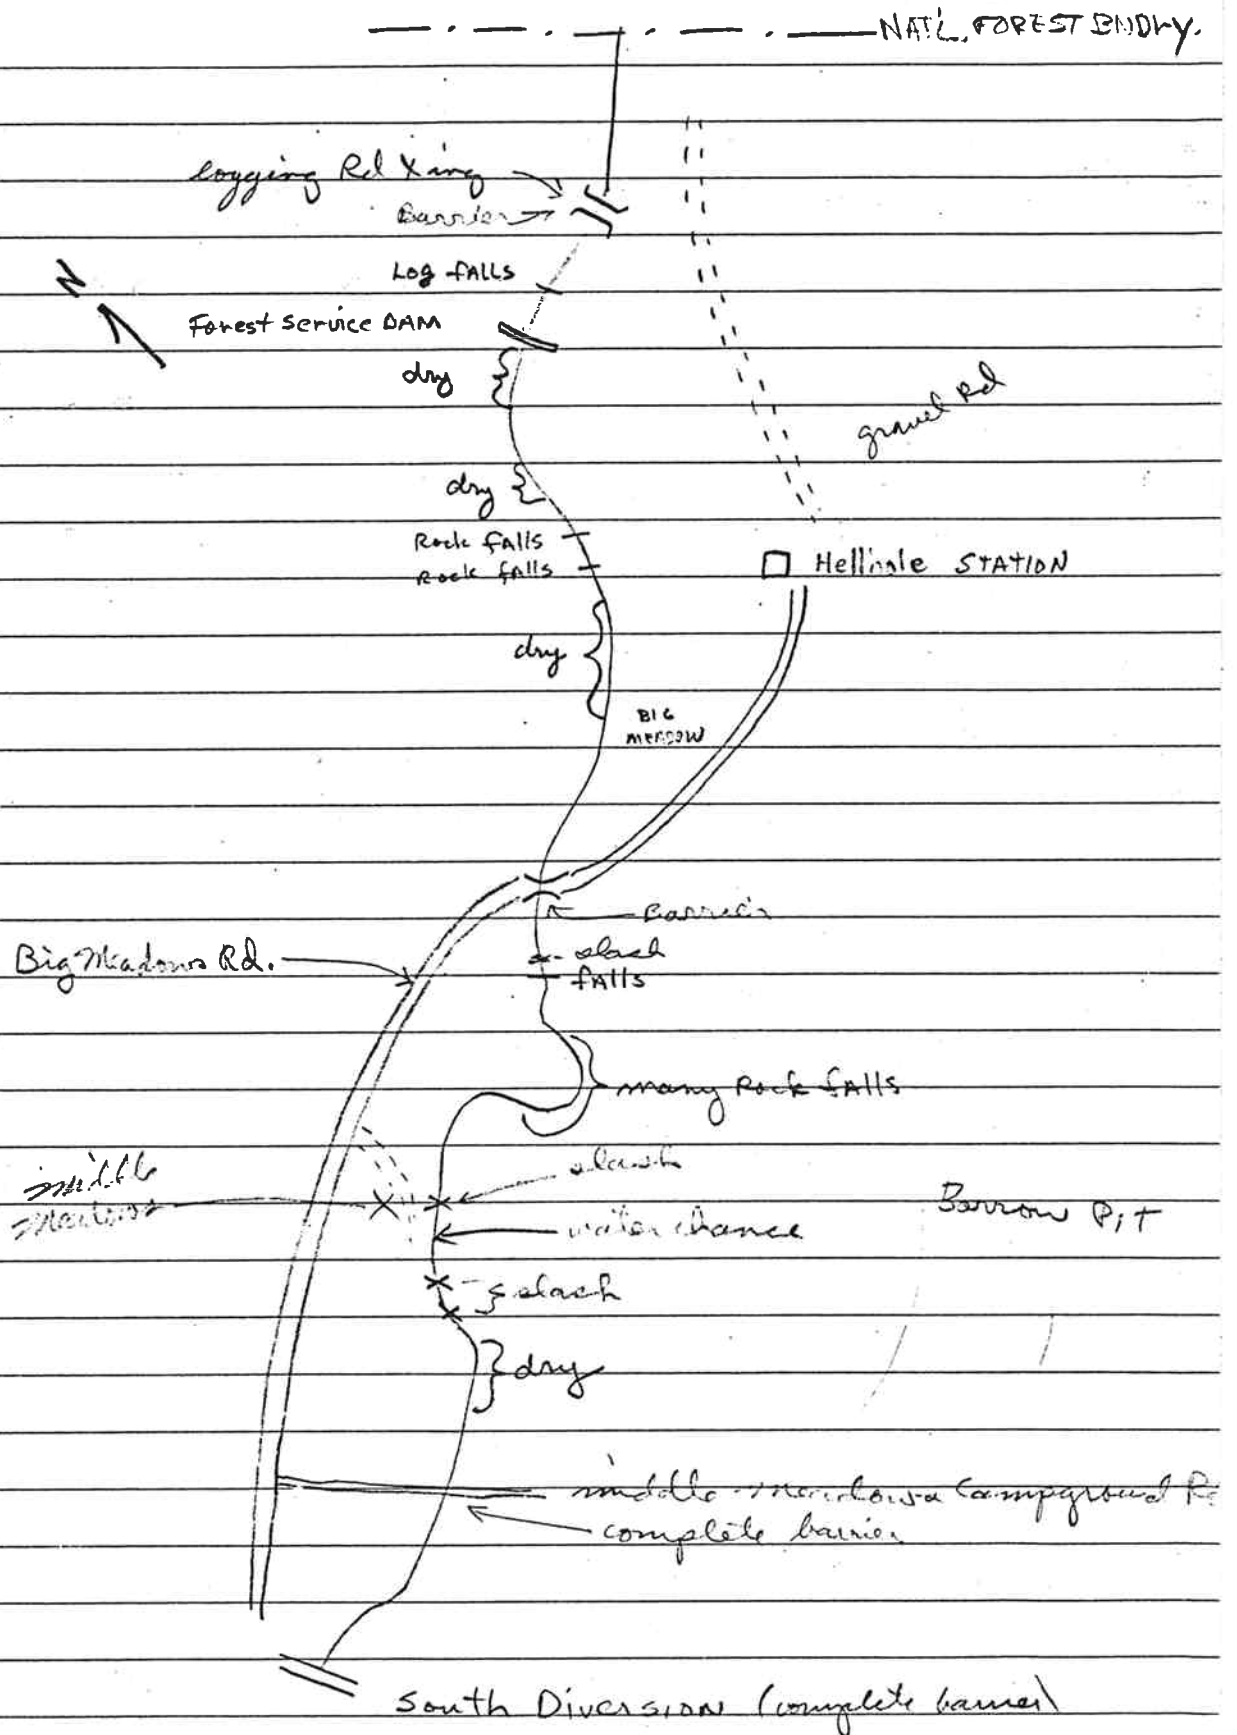 NAT'L. FOREST BNDRY.
logging Rd Xing
Barrier
N
Log fALLS
Forest Service DAM
dry
gravel Rd
dry
Rock fAlls
Rock fAlls
Hellhole STATION
dry
BIG
MEADOW
Barrier
Big Meadows Rd.
slash
fAlls
many Rock fAlls
slash
middle
Meadows
Barrow Pit
water chance
slash
dry
middle Meadows Campground
complete barrier
South Diversion (complete barrier)